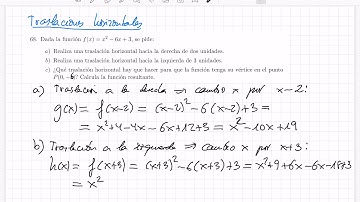 Traslaciones horizontales
68. Dada la función f(x) = x² − 6x + 3, se pide:
a) Realiza una traslación horizontal hacia la derecha de dos unidades.
b) Realiza una traslación horizontal hacia la izquierda de 3 unidades.
c) ¿Qué traslación horizontal hay que hacer para que la función tenga su vértice en el punto
P(0, −6)? Calcula la función resultante.
a) Traslación a la dcha ⇒ cambio x por x−2:
g(x) = f(x−2) = (x−2)² − 6(x−2) + 3 =
= x² + 4 − 4x − 6x + 12 + 3 = x² − 10x + 19
b) Traslación a la izquierda ⇒ cambio x por x+3:
h(x) = f(x+3) = (x+3)² − 6(x+3) + 3 = x² + 9 + 6x − 6x − 18 + 3
= x²